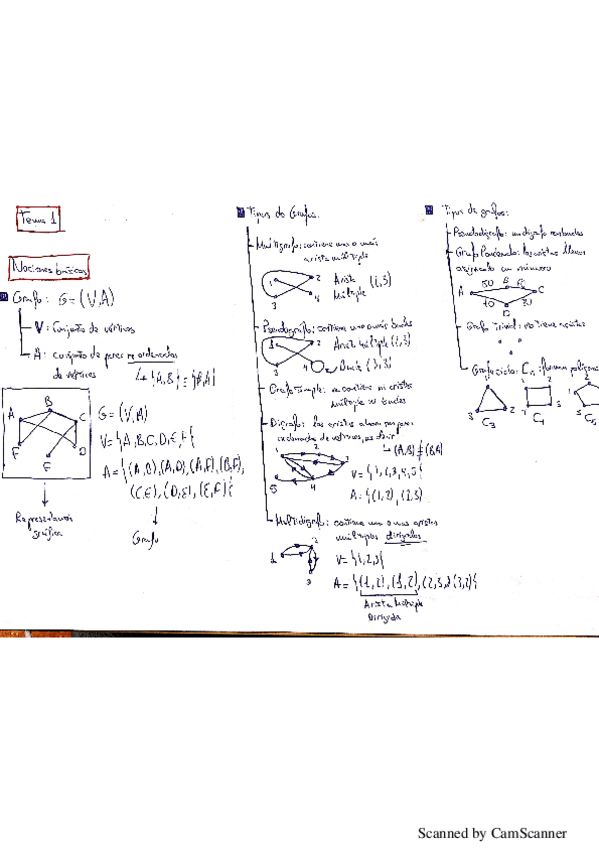 Tema 1
Nociones básicas
Grafo: G = (V, A)
V: Conjunto de vértices
A: conjunto de pares no ordenados
de vértices
↳ {A,B} = {B,A}
A
B
C
F
E
D
G = (V, A)
V = {A, B, C, D, E, F}
A = {(A,B), (A,D), (A,F), (B,F),
(C,E), (D,E), (E,F)}
Representación
gráfica
Grafo
Tipos de Grafos:
Multigrafo: contiene una o más
arista múltiple
1
2
3
4
Arista
Múltiple
Pseudografo: contiene uno o más bucles
1
2
3
4
Arista Múltiple
Bucle
Grafo simple: no contiene ni aristas
múltiples ni bucles
Digrafo: las aristas
ordenados de vértices, es decir
↳ (A,B) ≠ (B,A)
1
2
3
4
5
V = {1,2,3,4,5}
A = {(1,2), (2,3)
Multidigrafo: contiene una o más aristas
múltiples dirigidas
1
2
3
V = {1,2,3}
A = {(1,2), (1,2), (2,3), (3,2)}
Arista Múltiple
Dirigida
Tipos de grafos:
Pseudodigrafo: un digrafo con bucles
Grafo Ponderado: las aristas llevan
un número
A
50
B
C
70
D
Grafo Trivial: no tiene aristas
Grafo ciclo: Cₙ: forman polígonos
1
3
2
C₃
1
2
3
C₄
C₅
Scanned by CamScanner